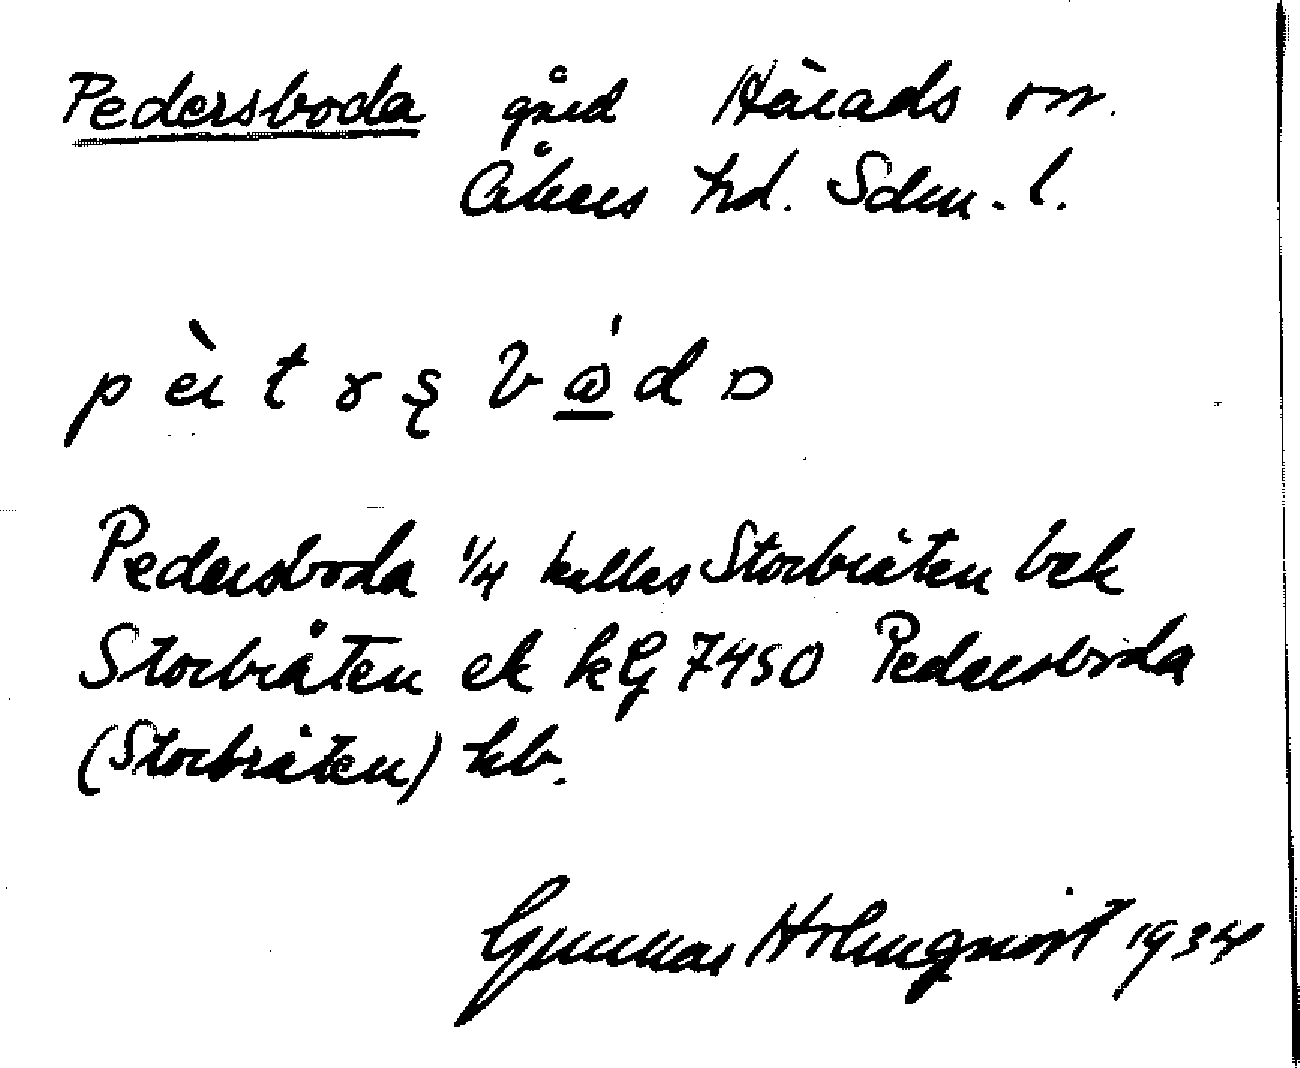 Pedersboda gård Härads sn.
Åkers hd. Sdm. l.
Pedersboda 1/4 kallas Storbråten bek
Storbråten ek kG 7450 Pedersboda
(Storbråten) kb.
Gunnar Holmqvist 1934